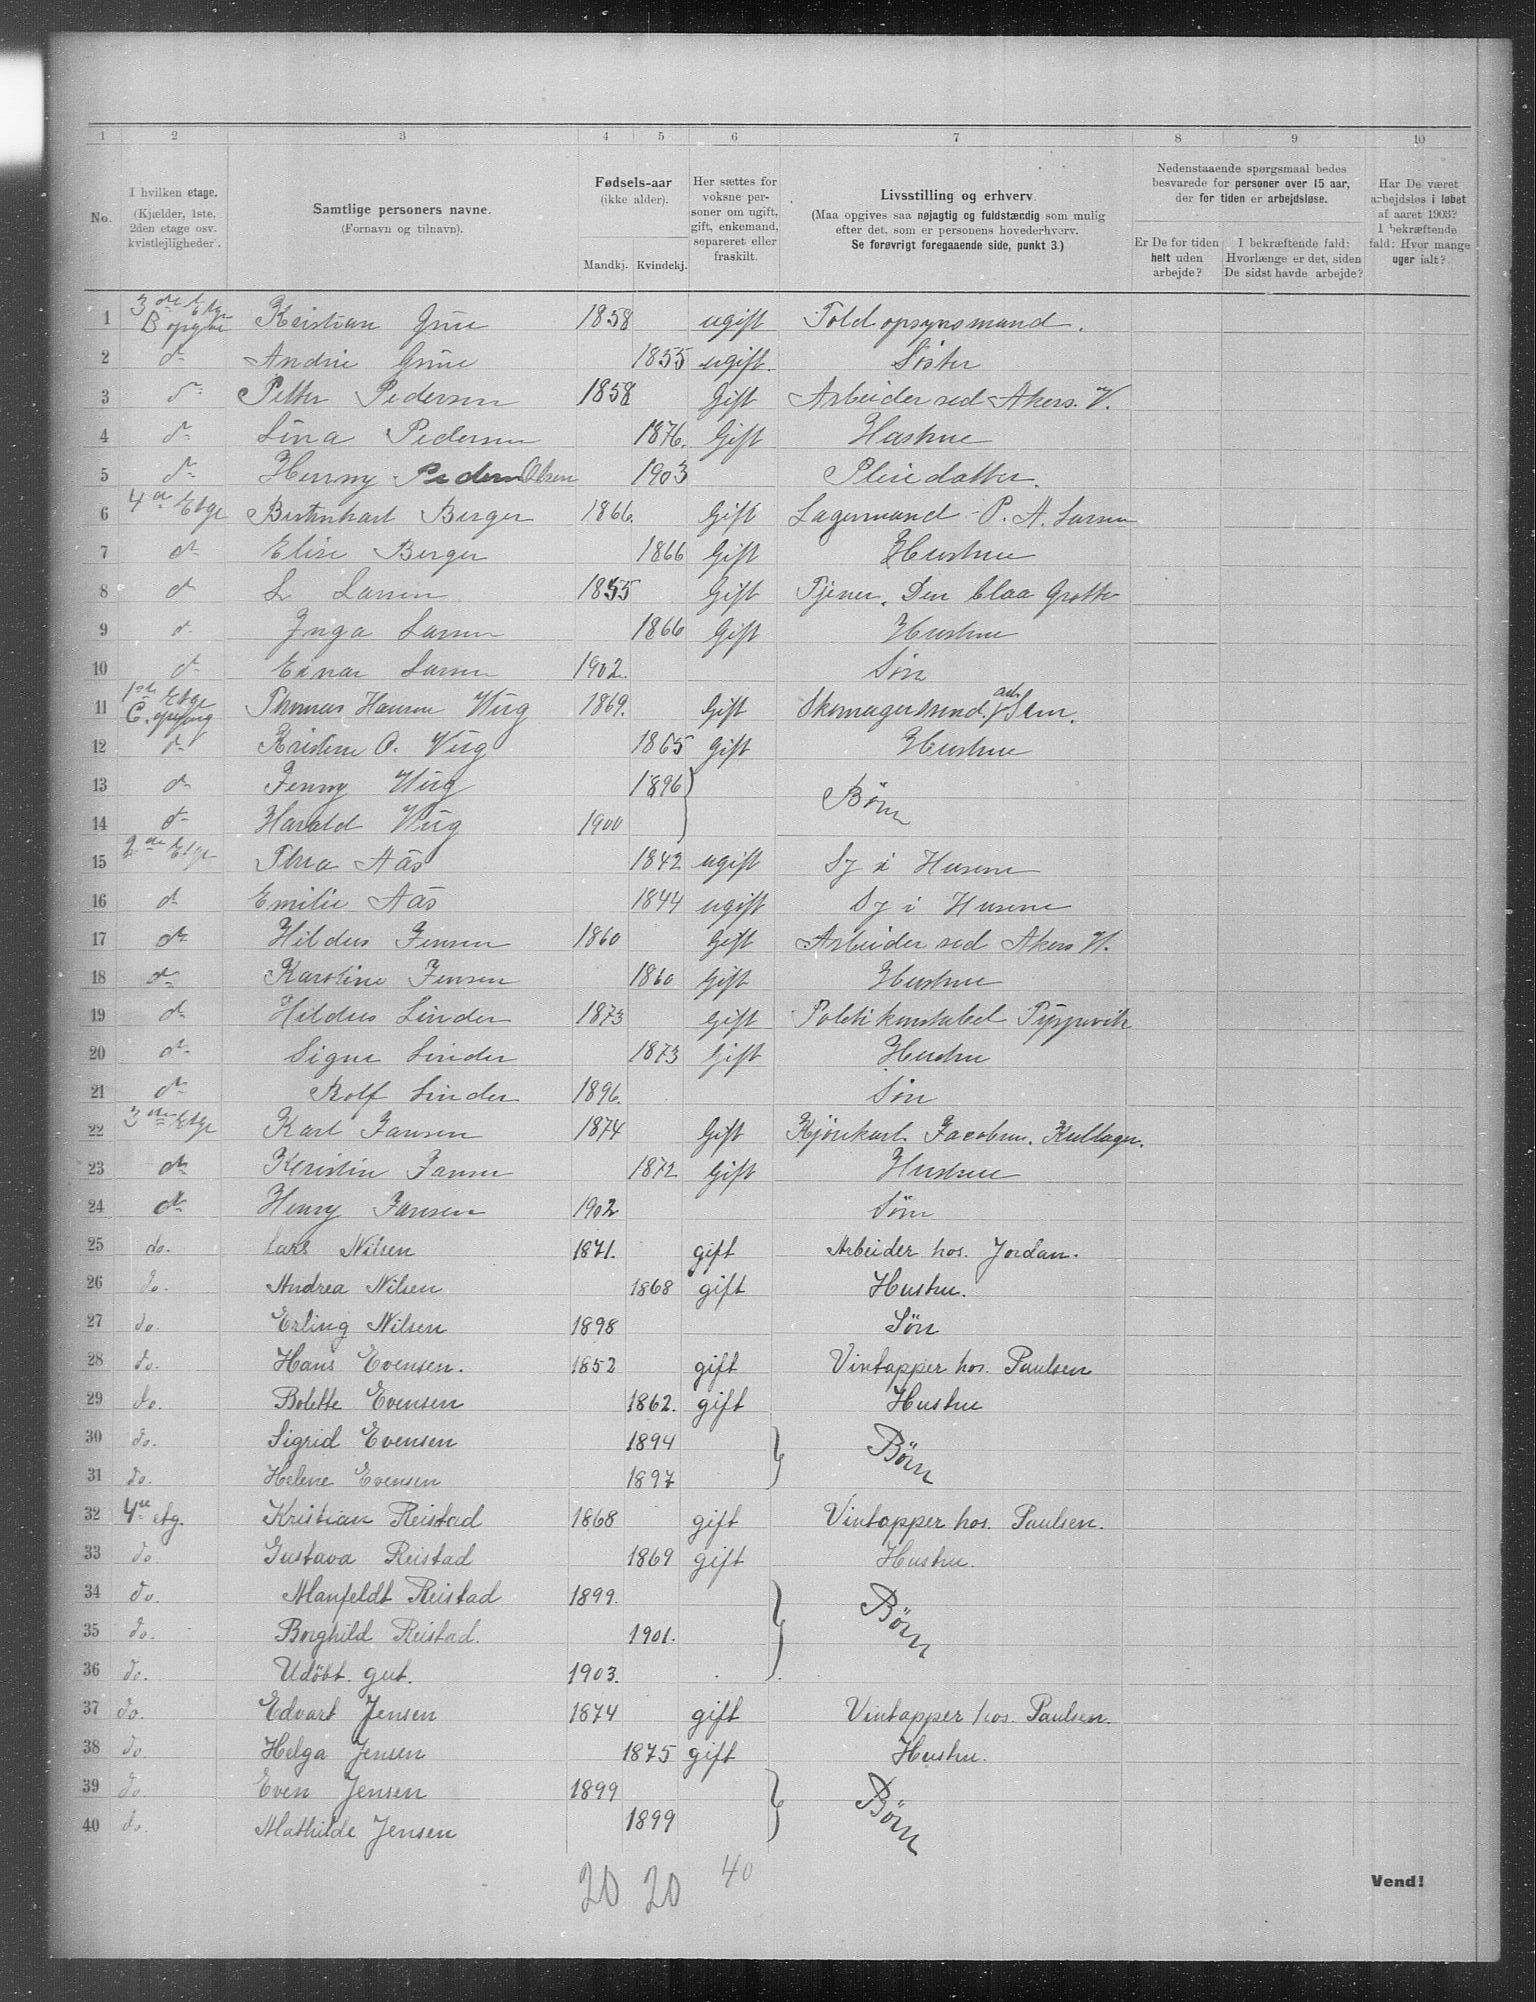 1 2 3 4 5 6 7 8 9 10
No.
I hvilken etage.
(Kjælder, 1ste, 2den etage osv. kvistlejligheder).
Samtlige personers navne.
(Fornavn og tilnavn).
Fødsels-aar
(ikke alder).
Mandkj. Kvindekj.
Her sættes for voksne personer om ugift, gift, enkemand, separeret eller fraskilt.
Livsstilling og erhverv
(Maa opgives saa nøjagtig og fuldstændig som mulig efter det, som er personens hovederhverv.
Se forøvrigt foregaaende side, punkt 3.)
Nedenstaaende spørgsmaal bedes besvarede for personer over 15 aar, der for tiden er arbejdsløse.
Er De for tiden helt uden arbejde?
I bekræftende fald: Hvorlænge er det, siden De sidst havde arbejde?
Har De været arbejdsløs i løbet af aaret 1903? I bekræftende fald: Hvor mange uger ialt?
1 3de Etge B opg Kristian Grue 1858 ugift Toldopsynsmand.
2 do Andrie Grue 1855 ugift. Søster
3 do Petter Pedersen 1858 Gift Arbeider ved Akers. V.
4 do Lina Pedersen 1876. Gift Hustrue
5 do Henny Pedersen Olsen 1903 Pleiedatter.
6 4de Etge Berger 1866. Gift Lagermand P. A. Larsen
7 do Elise Berger 1866 Gift Hustrue
8 do L Larsen 1855 Gift Tjener. Den blaa Grotte
9 do Inga Larsen 1866 Gift Hustrue
10 do Einar Larsen 1902. Søn
11 1ste Etge C. opgang Thomas Hansen Wiig 1869. Gift Skomagersvend. arb.
12 do Kristine O. Wiig 1865 Gift Hustrue
13 do Jenny Wiig 1896 } Børn
14 do Harald Wiig 1900
15 2de Etge Thea Aas 1842 ugift Sy i Husene
16 do Emilie Aas 1844 ugift Sy i Husene
17 do Hildus Jensen 1860 Gift Arbeider ved Akers V.
18 do Karoline Jensen 1860 Gift Hustrue
19 do Hildus Linder 1873 Gift Politikonstabel Pippervik
20 do Signe Linder 1873 Gift Hustru
21 do Rolf Linder 1896. Søn
22 3die Etge Karl Jansen 1874 Gift Kjørekarl. Jacobsen. Kullager.
23 do Kristin Jansen 1872 Gift Hustrue
24 do Henry Jansen 1902 Søn
25 do. Carl Nilsen 1871. gift Arbeider hos. Jordan.
26 do. Andrea Nilsen 1868 gift Hustru.
27 do. Erling Nilsen 1898 Søn
28 do. Hans Evensen. 1852 gift Vintapper hos. Paulsen
29 do. Bolette Evensen 1862. gift Hustru
30 do. Sigrid Evensen 1894 } Børn
31 do. Helene Evensen 1897
32 4de etg. Kristian Reistad 1868 gift Vintapper hos. Paulsen.
33 do. Gustava Reistad 1869 gift Hustru.
34 do. Manfeldt Reistad 1899. } Børn
35 do. Borghild Reistad. 1901.
36 do. Udøbt. gut. 1903.
37 do. Edvart Jensen 1874 gift Vintapper hos. Paulsen.
38 do. Helga Jensen 1875 gift Hustru.
39 do. Even Jensen 1899 } Børn
40 do. Mathilde Jensen 1899
20 20 40
Vend!